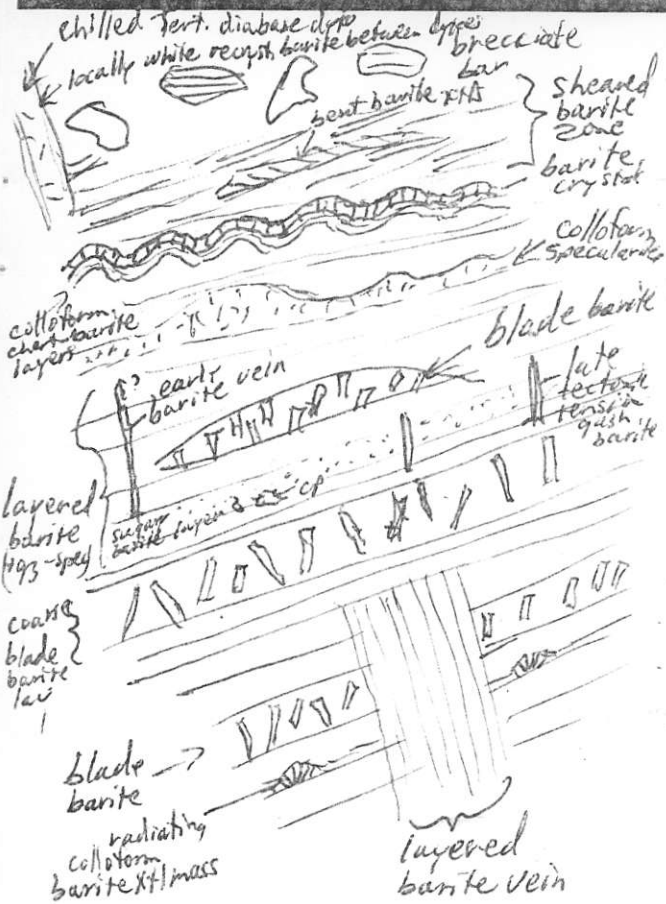 chilled Tert. diabase dyke
locally white recryst barite between dykes
brecciate
bar
bent barite xtls
sheared
barite
zone
barite
crystal
colloform
specularite
colloform
chert-barite
layers
blade barite
? early
barite vein
late
tectonic
tension
gash
barite
layered
barite
sugar
barite layer
cp
coarse
blade
barite
blade
barite
radiating
colloform
barite xtl mass
layered
barite vein